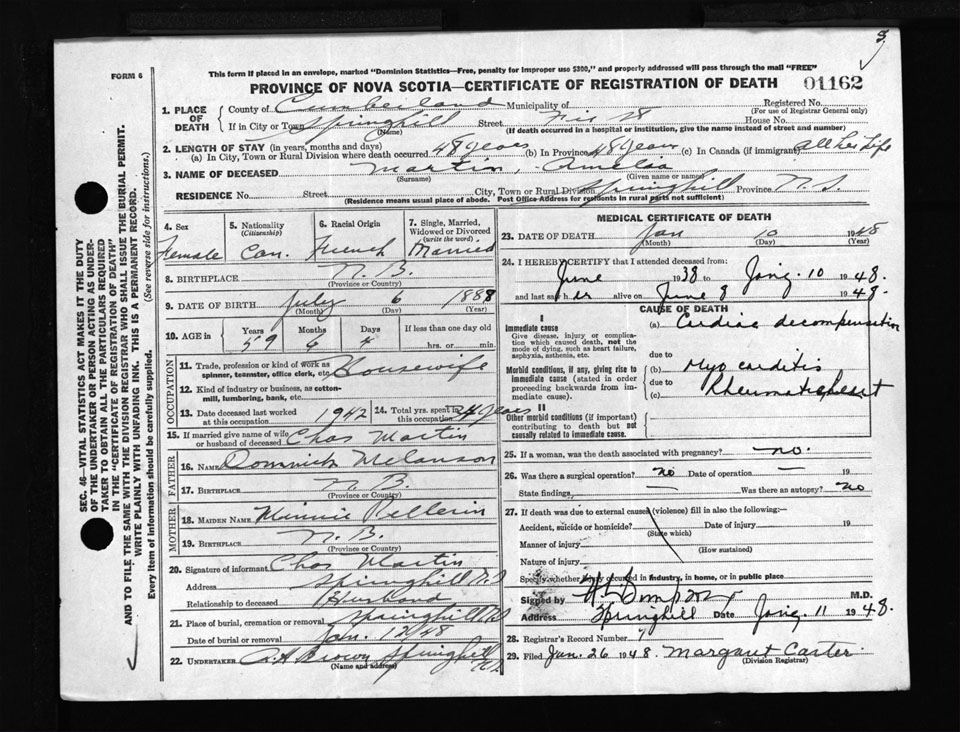 3
This form if placed in an envelope, marked "Dominion Statistics—Free, penalty for improper use $300," and properly addressed will pass through the mail "FREE"
FORM 6
PROVINCE OF NOVA SCOTIA—CERTIFICATE OF REGISTRATION OF DEATH 01162
1. PLACE OF DEATH County of Cumberland Municipality of Registered No. (For use of Registrar General only)
If in City or Town Springhill Street House No.
(Name) (If death occurred in a hospital or institution, give the name instead of street and number)
2. LENGTH OF STAY (in years, months and days)
(a) In City, Town or Rural Division where death occurred 48 years (b) In Province 48 years (c) In Canada (if immigrant) all her Life
3. NAME OF DECEASED Martin, Amelia
(Surname) (Given name or names)
RESIDENCE No. Street City, Town or Rural Division Springhill Province N.S.
(Residence means usual place of abode. Post Office Address for residents in rural parts not sufficient)
4. Sex Female
5. Nationality (Citizenship) Can.
6. Racial Origin French
7. Single, Married, Widowed or Divorced (write the word) Married
8. BIRTHPLACE N.B.
(Province or Country)
9. DATE OF BIRTH July 6 1888
(Month) (Day) (Year)
10. AGE in Years Months Days If less than one day old
59 6 4 hrs. or min.
OCCUPATION
11. Trade, profession or kind of work as spinner, teamster, office clerk, etc. Housewife
12. Kind of industry or business, as cotton-mill, lumbering, bank, etc.
13. Date deceased last worked at this occupation 1942
14. Total yrs. spent in this occupation 34 years
15. If married give name of wife or husband of deceased Chas Martin
FATHER
16. NAME Domnick Melanson
17. BIRTHPLACE N.B.
(Province or Country)
MOTHER
18. MAIDEN NAME Minnie Pellerin
19. BIRTHPLACE N.B.
(Province or Country)
20. Signature of informant Chas Martin
Address Springhill N.S.
Relationship to deceased Husband
21. Place of burial, cremation or removal Springhill N.S.
Date of burial or removal Jan. 12 48
22. UNDERTAKER A.A. Brown Springhill N.S.
(Name and address)
MEDICAL CERTIFICATE OF DEATH
23. DATE OF DEATH Jan 10 1948
(Month) (Day) (Year)
24. I HEREBY CERTIFY that I attended deceased from:
June 1938 to 10 1948.
and last saw her alive on June 8 1948.
CAUSE OF DEATH
I
Immediate cause
Give disease, injury or complication which caused death, not the mode of dying, such as heart failure, asphyxia, asthenia, etc.
(a) Cardiac decompensation
due to
Morbid conditions, if any, giving rise to immediate cause (stated in order proceeding backwards from immediate cause).
(b) Myocarditis
due to
(c) Rheumatic heart
II
Other morbid conditions (if important) contributing to death but not causally related to immediate cause.
25. If a woman, was the death associated with pregnancy? no.
26. Was there a surgical operation? no Date of operation — 19
State findings — Was there an autopsy? no
27. If death was due to external causes (violence) fill in also the following:—
Accident, suicide or homicide? Date of injury 19
(State which)
Manner of injury
(How sustained)
Nature of injury
Specify whether injury occurred in industry, in home, or in public place
Signed by M.D.
Address Springhill Date 11 1948.
28. Registrar's Record Number 7
29. Filed Jan. 26 1948. Margaret Carter
(Division Registrar)
SEC. 46—VITAL STATISTICS ACT MAKES IT THE DUTY OF THE UNDERTAKER OR PERSON ACTING AS UNDERTAKER TO OBTAIN ALL THE PARTICULARS REQUIRED IN THE "CERTIFICATE OF REGISTRATION OF DEATH" AND TO FILE THE SAME WITH THE DIVISION REGISTRAR WHO SHALL ISSUE THE BURIAL PERMIT.
WRITE PLAINLY WITH UNFADING INK. THIS IS A PERMANENT RECORD.
Every item of information should be carefully supplied. (See reverse side for instructions.)